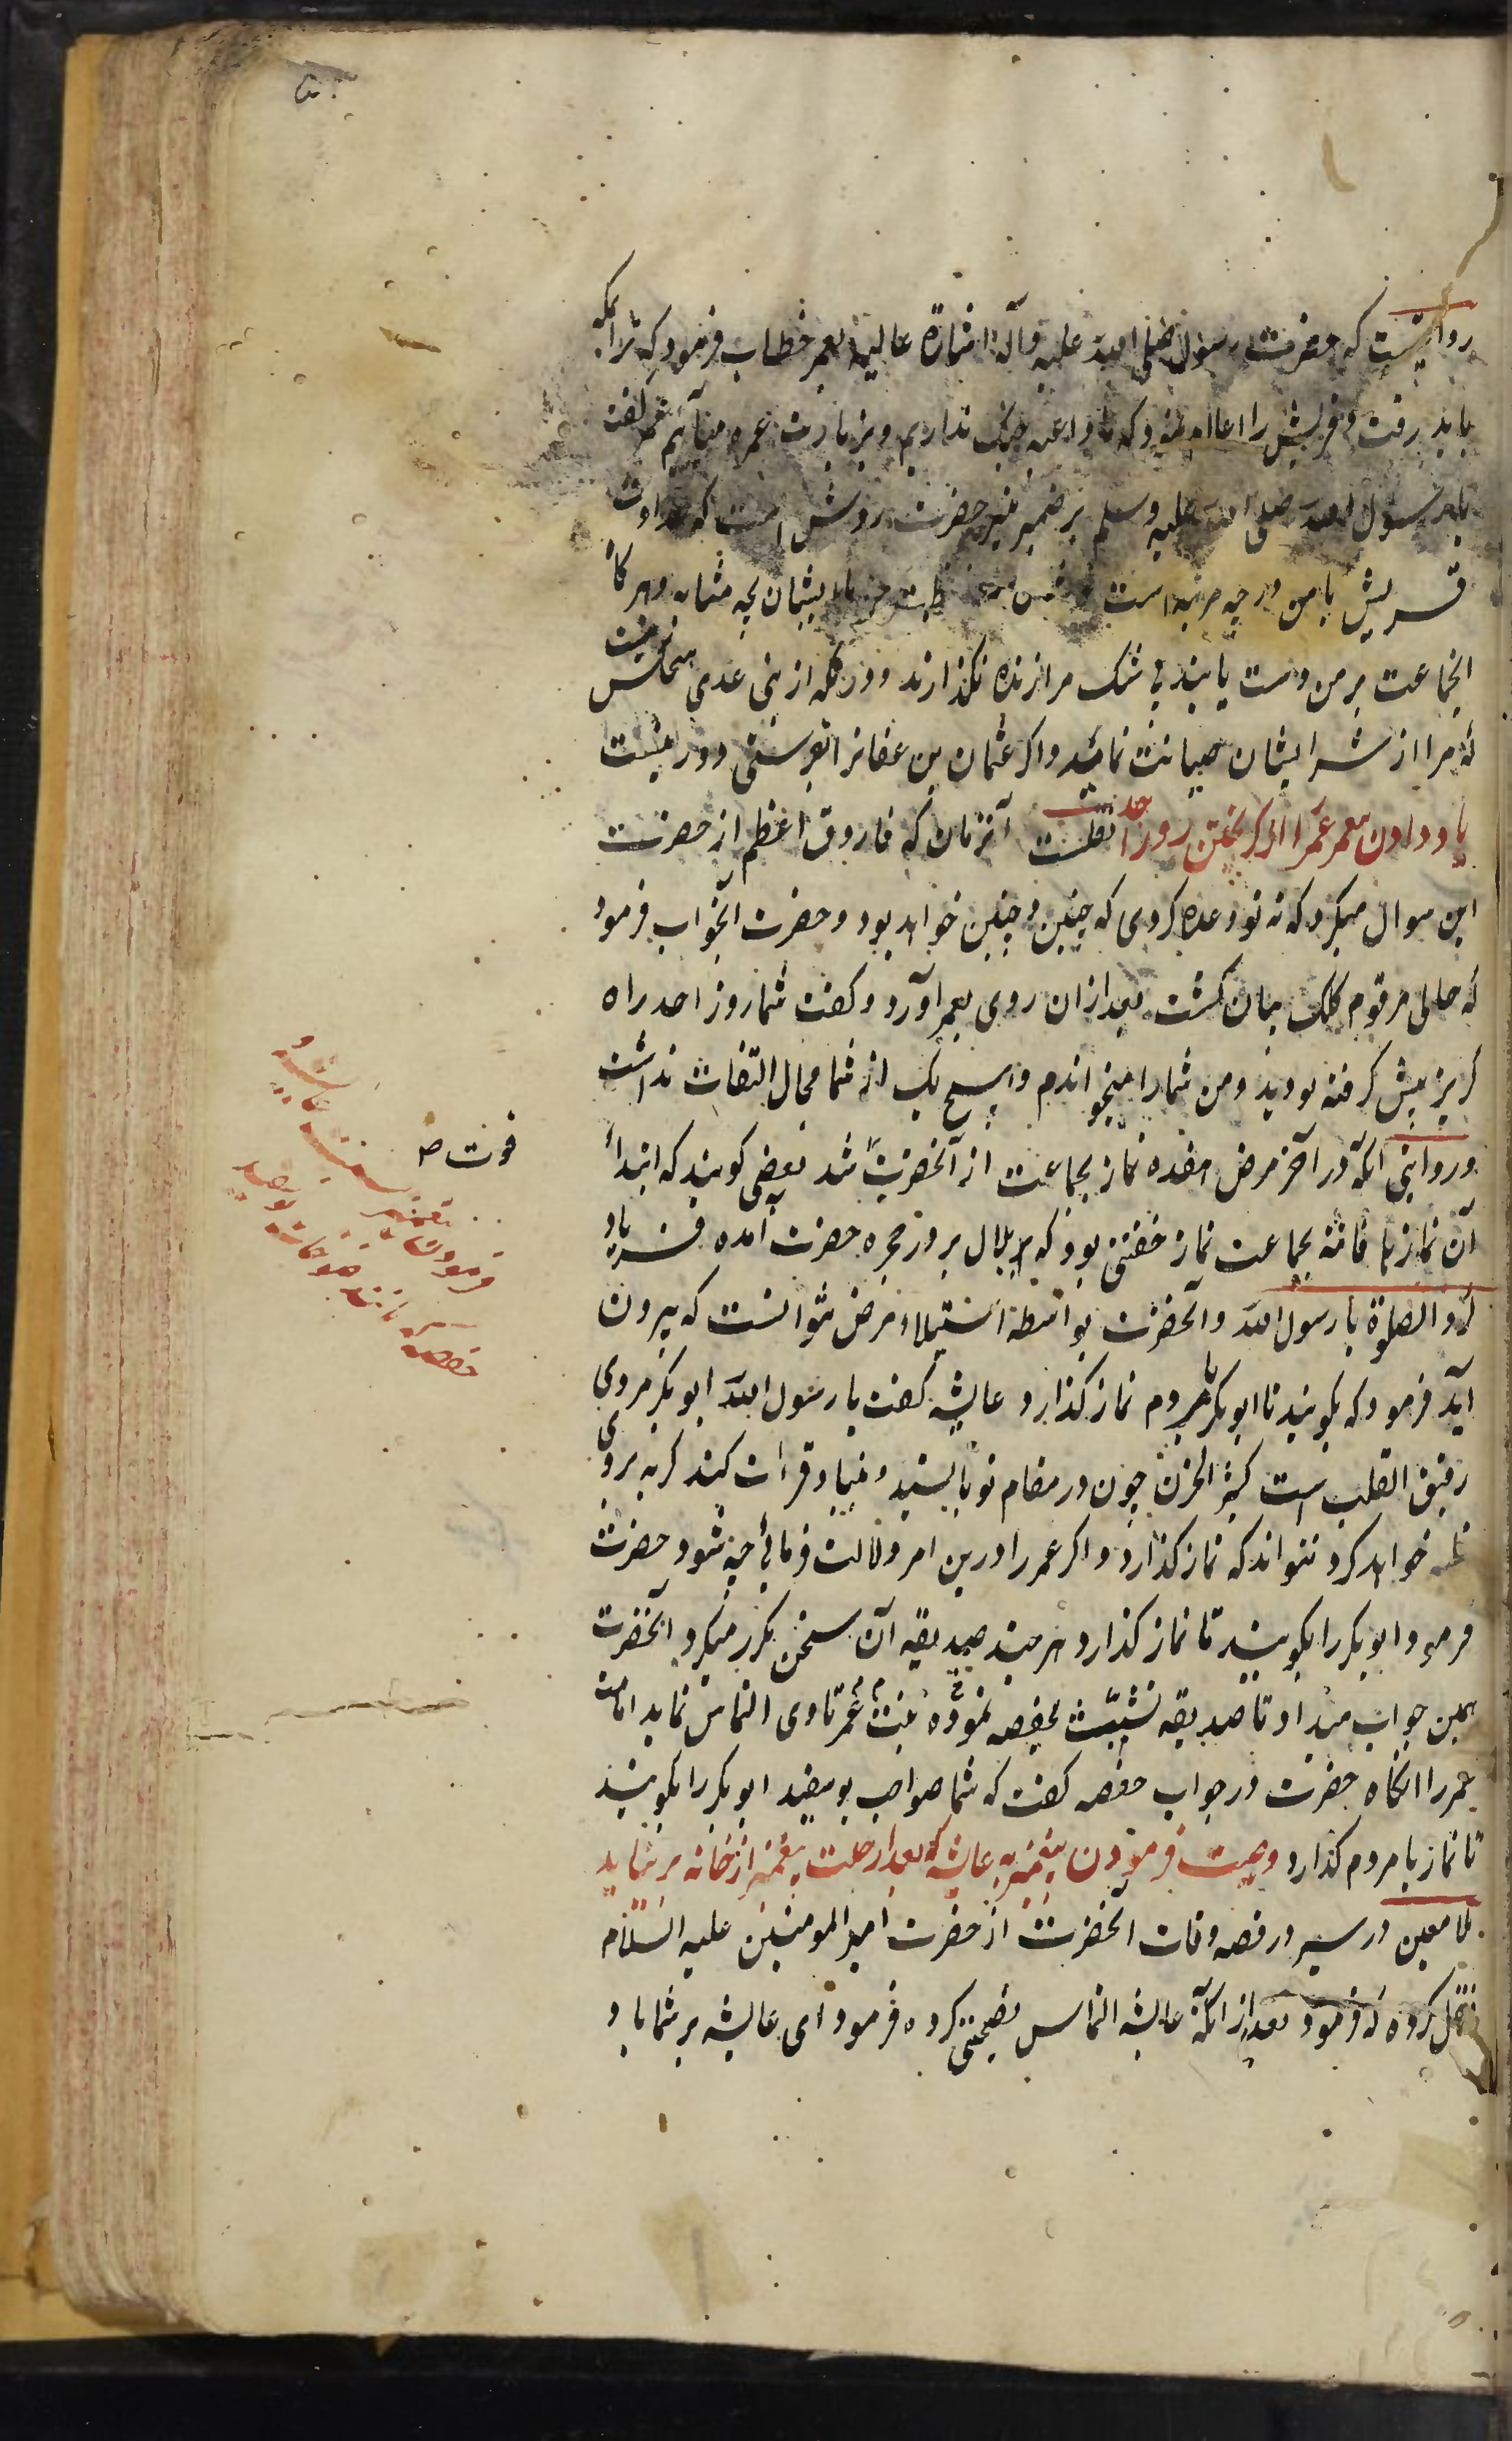 روایتست که حضرت رسول صلی الله علیه وآله اشارة عالیه بعمر خطاب فرمود که ترا بمکه
باید رفت و قریش را اعلام نمود که ما داعیه جنگ نداریم و بزیارت عمره میآئیم عمر گفت
یا رسول الله صلی الله علیه وسلم بر ضمیر منیر حضرت روشن است که عداوت
قریش با من در چه مرتبه است من با ایشان بچه مثابه و هرگاه
آنجماعت بر من دست یابند بی شک مرا زنده نگذارند و در مکه از بنی عدی هیچکس نیست
که مرا از شر ایشان صیانت نماید و اگر عثمان بن عفانرا بفرستی دور نیست
یاد دادن بعمر عمر را از گریختن روز احد نقلست آنزمان که فاروق اعظم از حضرت
این سوال میکرد که نه تو وعده کردی که چنین و چنین خواهد بود و حضرت آنجواب فرمود
که حالی مرقوم کلک بیان گشت بعد از ان روی بعمر آورد و گفت شما روز احد راه
گریز پیش گرفته بودید و من شما را میخواندم و هیچ یک از شما مجال التفات نداشت
و روایتی آنکه در آخر مرض هفده نماز بجماعت از آنحضرت شد بعضی گویند که ابتداء
آن نماز ما فاتته بجماعت نماز خفتن بود که بلال بر در حجره حضرت آمده فریاد
کرد الصلوة یا رسول الله و آنحضرت بواسطه استیلاء مرض نتوانست که بیرون
آید فرمود که بگوئید تا ابوبکر با مردم نماز گذارد عایشه گفت یا رسول الله ابوبکر مردی
رقیق القلب است کثیر الحزن چون در مقام تو بایستد و بنیاد قرائت کند گریه بر وی
غلبه خواهد کرد نتواند که نماز گذارد و اگر عمر را درین امر دلالت فرمائی چه شود حضرت
فرمود ابوبکر را بگوئید تا نماز گذارد هر چند صدیقه آن سخن مکرر میکرد آنحضرت
همین جواب میداد تا صدیقه تشبث بحفصه نموده بنت عمر تا وی التماس نماید امامت
عمر را آنگاه حضرت در جواب حفصه گفت که شما صواحب یوسفید ابوبکر را بگوئید
تا نماز با مردم گذارد وصیت فرمودن پیغمبر به عایشه که بعد از رحلت پیغمبر از خانه بر نیاید
ملا معین در سیر در قصه وفات آنحضرت از حضرت امیر المومنین علیه السلام
نقل کرده که فرمود بعد از آنکه عایشه التماس نصیحتی کرده فرمود ای عایشه بر شما باد
فوت ص
فرمودن پیغمبر